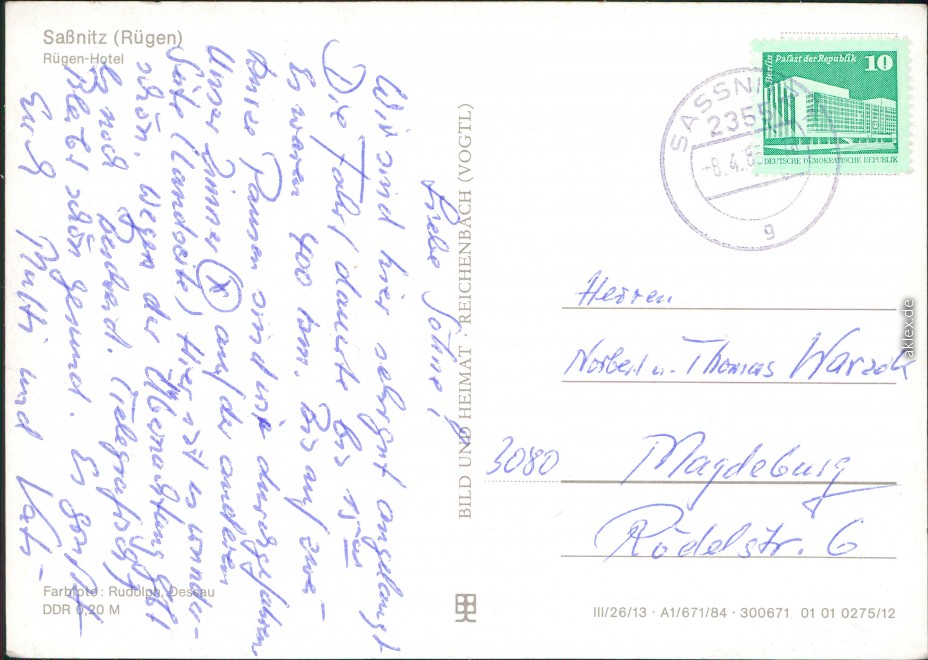 Saßnitz (Rügen)
Rügen-Hotel
Liebe Söhne!
Wir sind hier sehr gut angelangt
Die Fahrt dauerte bis 15 Uhr
Es waren 400 km. Bis auf zwei
Pausen sind wir durchgefahren
Unser Zimmer (x) auf der anderen
Seite (Landseite) Hier ist es wunder-
schön. Wegen der Übernachtung gebt
Ihr noch Bescheid. Telegrafisch
Bleibt schön gesund. Es grüßt
Euch Mutti und Vati
Farbfoto: Rudolph, Dessau
DDR 0,20 M
BILD UND HEIMAT · REICHENBACH (VOGTL)
Berlin Palast der Republik 10
DEUTSCHE DEMOKRATISCHE REPUBLIK
SASSNITZ
2355
-8.4.85
g
Herren
Norbert u. Thomas Warzok
3080 Magdeburg
Rödelstr. 6
III/26/13 · A1/671/84 · 300671 01 01 0275/12
aklex.de